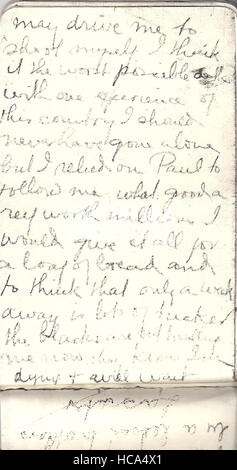 may drive me to
shoot myself I think
it the worst possible death
with one experience of
this country I should
never have gone alone
but I relied on Paul to
follow me what good a
reef worth millions I
would give it all for
a loaf of bread and
to think that only a week
away is lots of tucker
the blacks are not troubling
me now they know I am
dying & will wait
alamy
www.alamy.com - HCA4X1